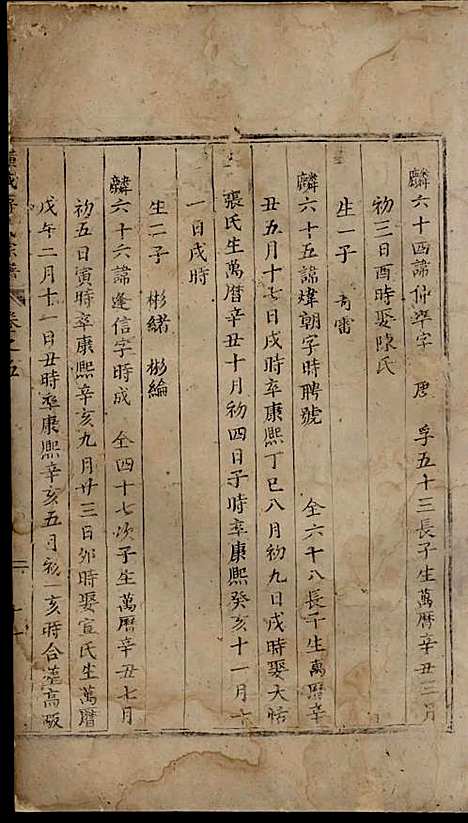 麟六十四諱仰準字 唐 孚五十三長子生萬曆辛丑三月
初三日酉時娶陳氏
生一子 奇雷
麟六十五諱煒朝字時聘號 全六十八長子生萬曆辛
丑五月十七日戌時卒康熙丁巳八月初九日戌時娶大恬
張氏生萬曆辛丑十月初四日子時卒康熙癸亥十一月十
一日戌時
生二子 彬緒 彬綸
麟六十六諱逢信字時成 全四十七次子生萬曆辛丑七月
初五日寅時卒康熙辛亥九月廿三日卯時娶宣氏生萬曆
戊午二月十一日丑時卒康熙辛亥五月初 亥時合葬高畈
氏宗譜 卷之五